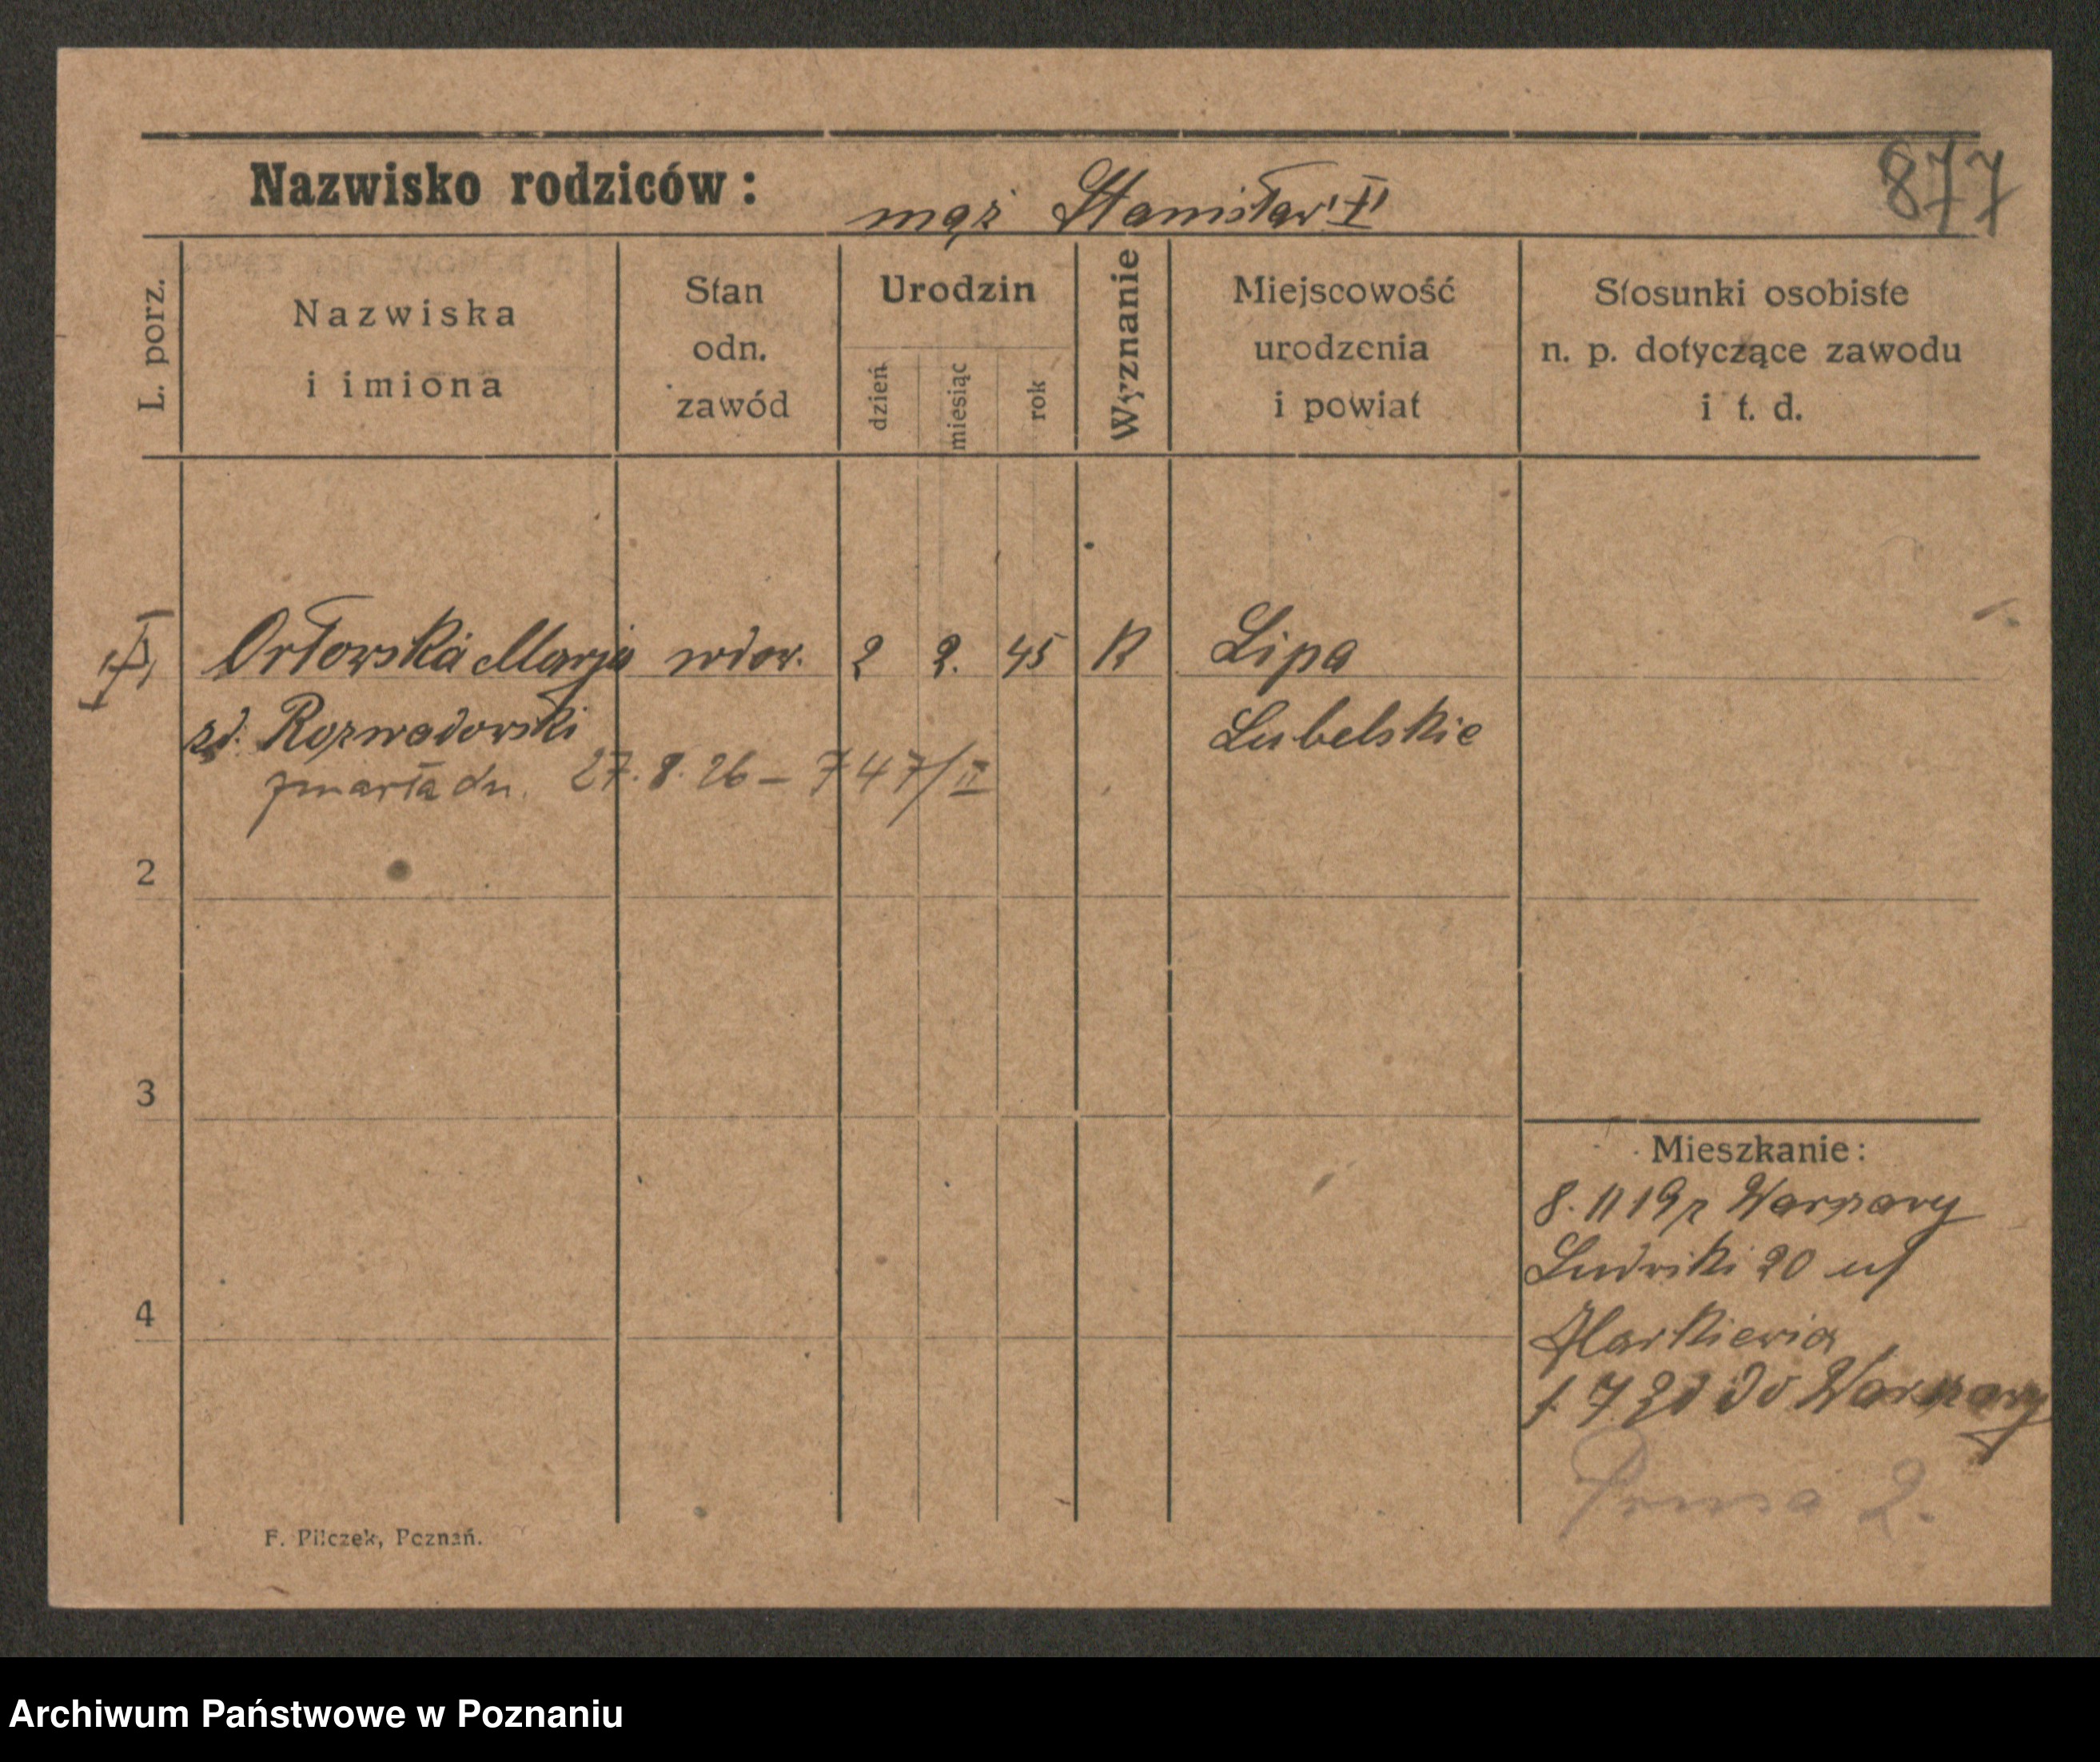 877
Nazwisko rodziców: mąż Stanisław
L. porz.
Nazwiska i imiona
Stan odn. zawód
Urodzin
dzień
miesiąc
rok
Wyznanie
Miejscowość urodzenia i powiat
Stosunki osobiste n. p. dotyczące zawodu i t. d.
Orłowska Marja wdow. 2 2. 45 R Lipa
zd. Rozwadowski Lubelskie
zmarła dn. 27.8.26 – 747/II
2
3
4
Mieszkanie:
8. 11 19 z Warszawy
Ludwiki 20 u/
7 20 do Warszawy
2.
F. Pilczek, Poznań.
Archiwum Państwowe w Poznaniu